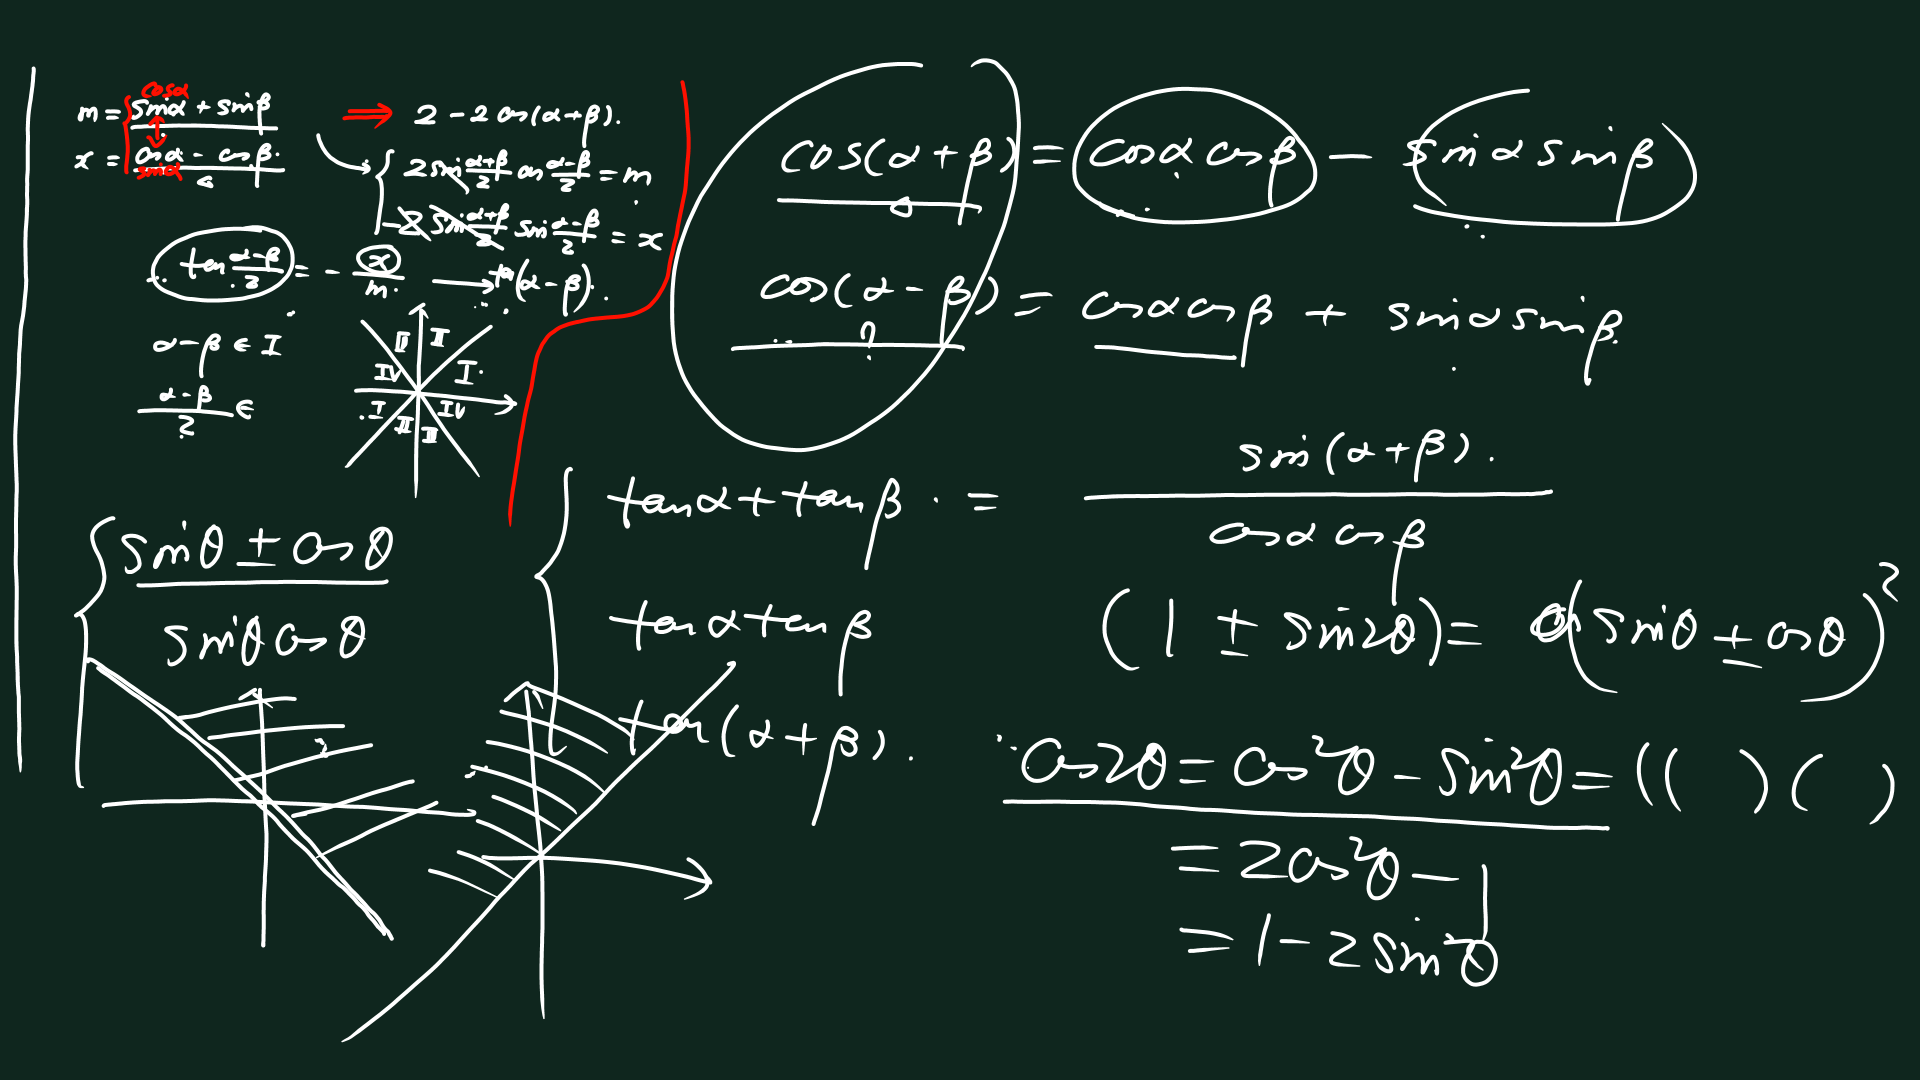 cosα
m = sinα + sinβ ⇒ 2 - 2cos(α+β).
x = cosα - cosβ.
sinα
2sin (α+β)/2 cos (α-β)/2 = m
-2 sin (α+β)/2 sin (α-β)/2 = x
tan (α-β)/2 = - x/m. → tan(α-β).
α-β ∈ I
(α-β)/2 ∈
II II
IV I
I IV
II II
cos(α+β) = cosα cosβ - sinα sinβ
cos(α-β) = cosα cosβ + sinα sinβ
?
tanα + tanβ = sin(α+β). / cosα cosβ
tanα tanβ
tan(α+β).
sinθ ± cosθ
sinθ cosθ
(1 ± sin2θ) = (sinθ ± cosθ)²
cos2θ = cos²θ - sin²θ = (( ) ( )
= 2cos²θ - 1
= 1 - 2sin²θ